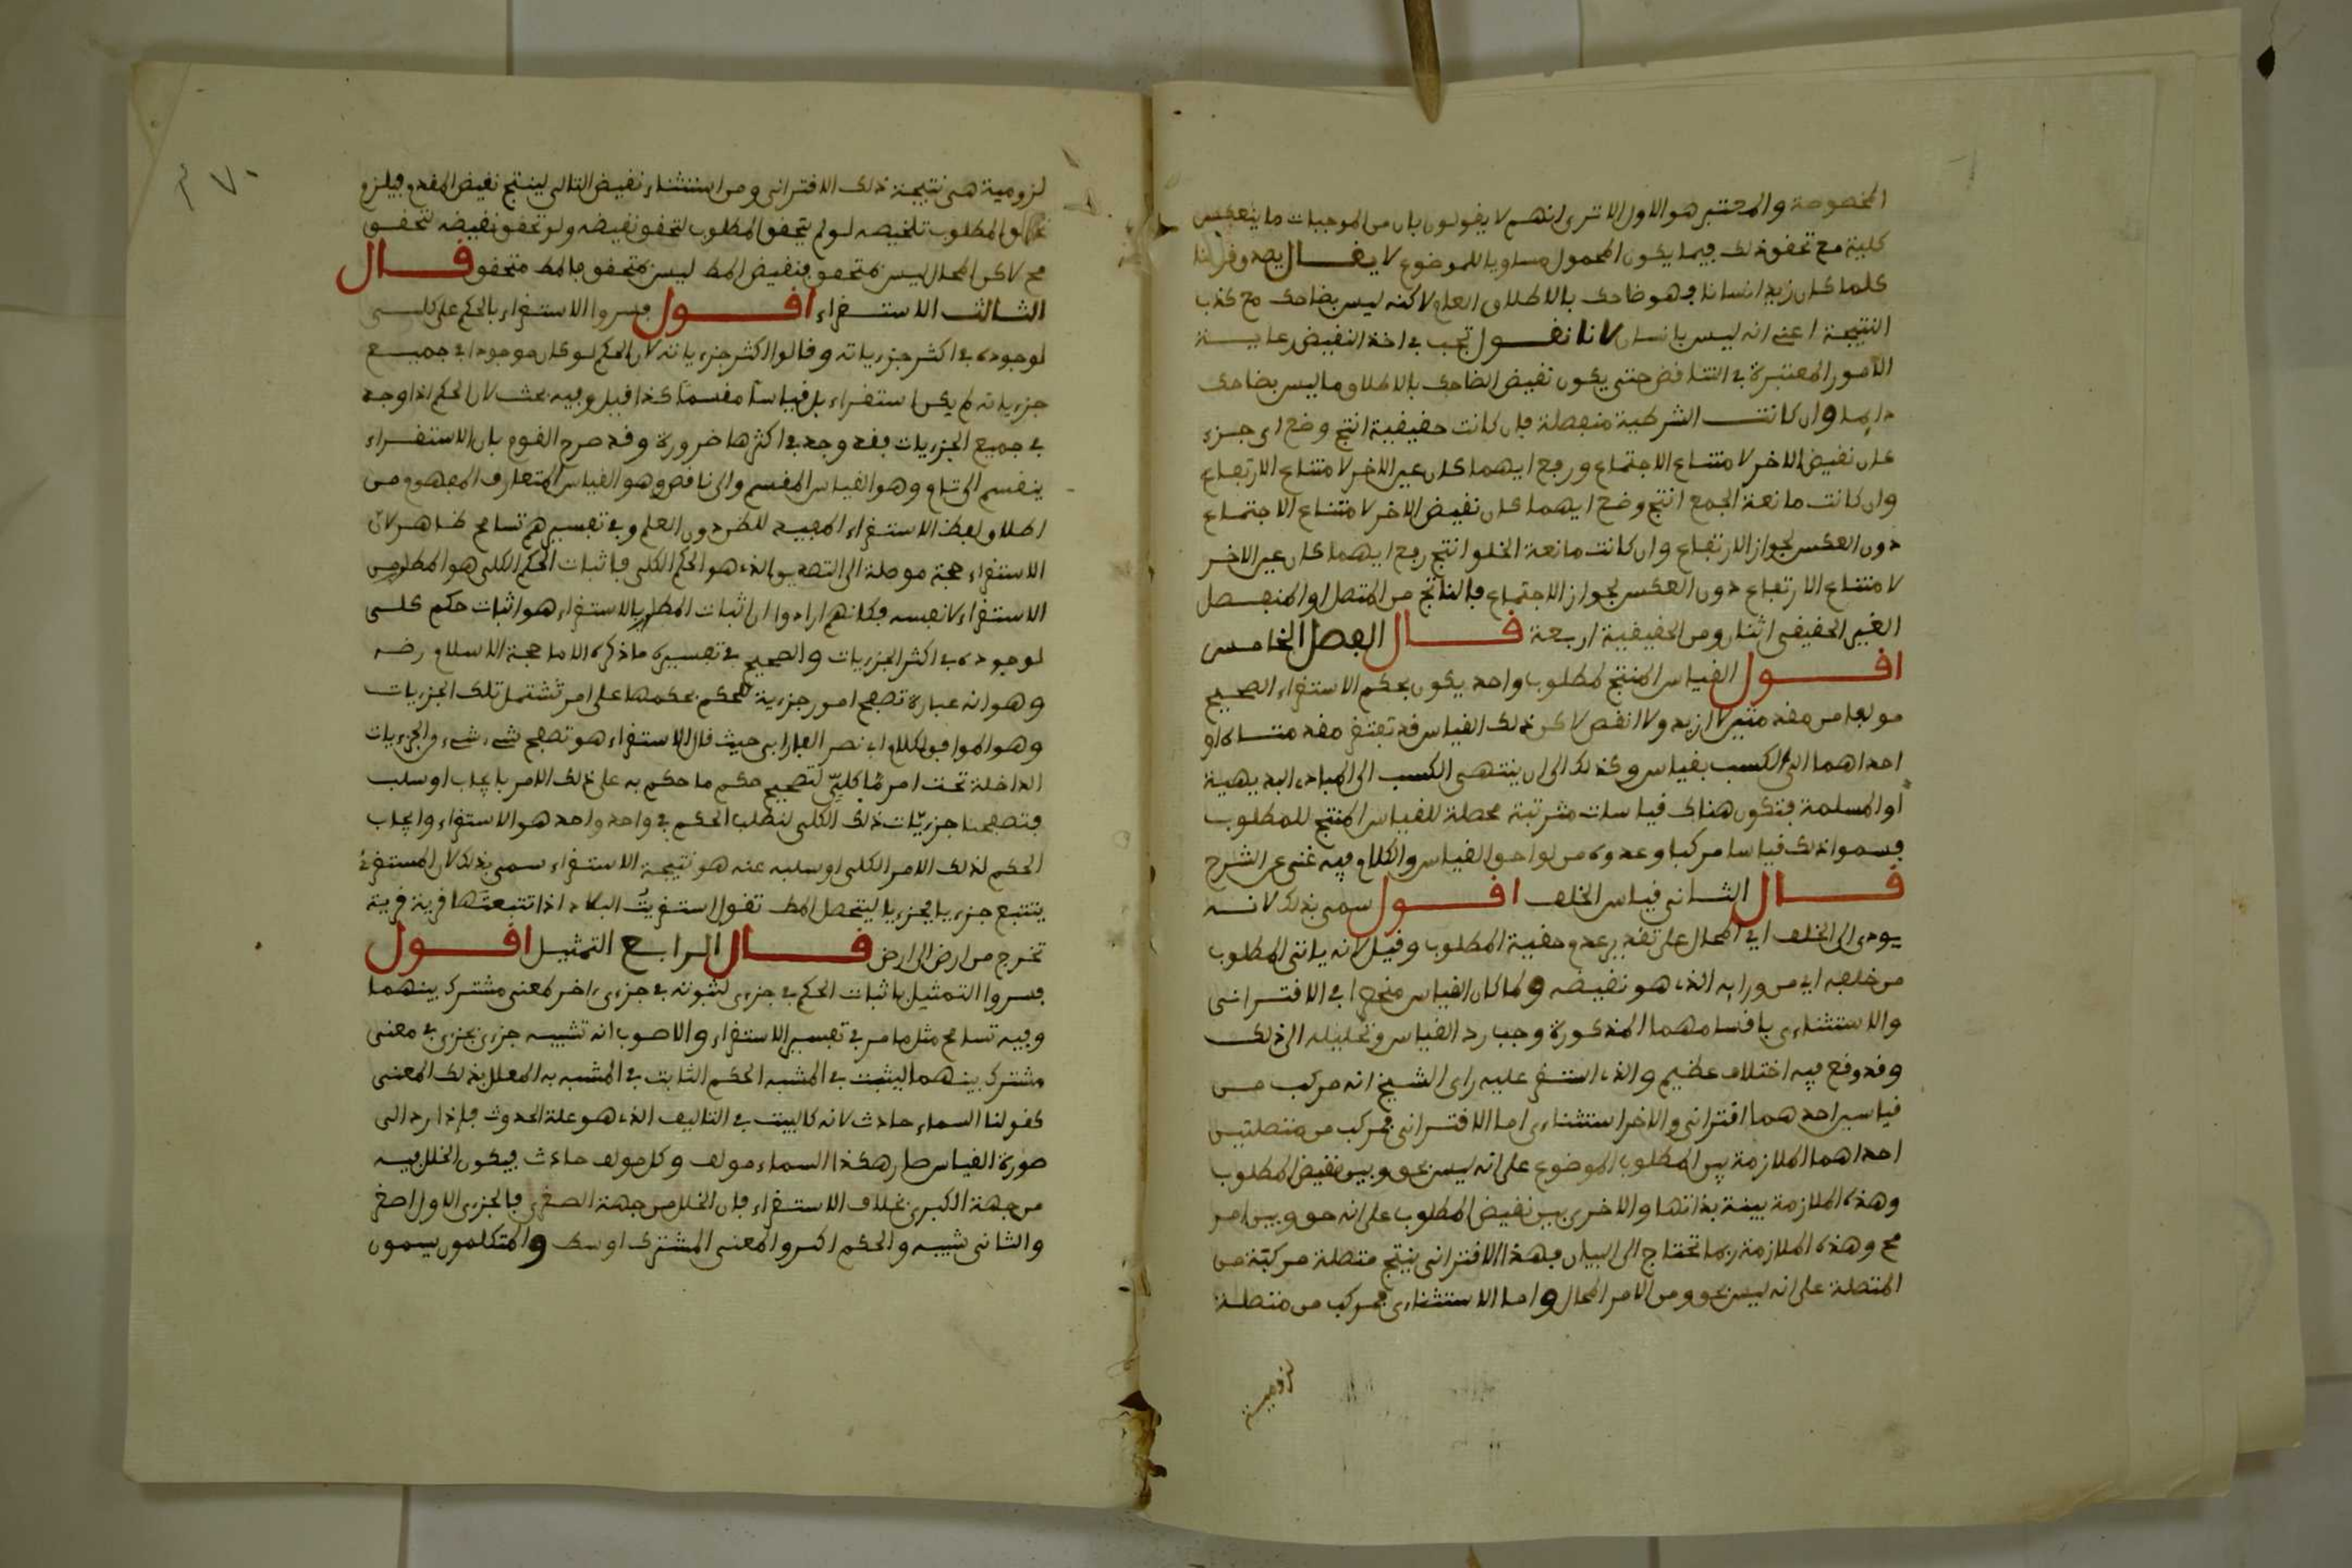 المخصوصة والمعتبر هو الاول الا ترى انهم لا يقولون بان من الموجبات ما ينعكس
كلية مع تحقق ذلك فيما يكون المحمول مساويا للموضوع لا يقال يصدق قولنا
كلما كان زيد انسانا فهو ضاحك بالاطلاق العام لاكنه ليس بضاحك مع كذب
النتيجة اعني انه ليس بانسان لانا نقول تجب في اخذ النقيض رعاية
الامور المعتبرة في التناقض حتى يكون نقيض الضاحك بالاطلاق ما ليس بضاحك
دايما وان كانت الشرطية منفصلة فان كانت حقيقية انتج وضع اي جزء
كان نقيض الاخر لامتناع الاجتماع ورفع ايهما كان عين الاخر لامتناع الارتفاع
وان كانت مانعة الجمع انتج وضع ايهما كان نقيض الاخر لامتناع الاجتماع
دون العكس لجواز الارتفاع وان كانت مانعة الخلو انتج رفع ايهما كان عين الاخر
لامتناع الارتفاع دون العكس لجواز الاجتماع فالناتج من المتصل او المنفصل
الغير الحقيقي اثنان ومن الحقيقية اربعة قال الفصل الخامس
اقول القياس المنتج لمطلوب واحد يكون بحكم الاستقراء الصحيح
مولفا من مقدمتين لا ازيد ولا انقص لاكن ذلك القياس قد تفتقر مقدمتاه او
احداهما الى الكسب بقياس وكذلك الى ان ينتهي الكسب الى المبادي البديهية
او المسلمة فتكون هناك قياسات مترتبة محصلة للقياس المنتج للمطلوب
فسموا ذلك قياسا مركبا وعدوه من لواحق القياس والكلام فيه غني عن الشرح
قال الثاني قياس الخلف اقول سمي بذلك لانه
يودي الى الخلف اي المحال على تقدير عدم حقية المطلوب وقيل لانه ياتي المطلوب
من خلفه اي من ورايه الذي هو نقيضه ولما كان القياس منحصرا في الاقتراني
والاستثناءي باقسامهما المذكورة وجب رد القياس وتحليله الى ذلك
وقد وقع فيه اختلاف عظيم والذي استقر عليه راي الشيخ انه مركب من
قياسين احدهما اقتراني والاخر استثناءي اما الاقتراني فمركب من متصلتين
احداهما الملازمة بين المطلوب الموضوع على انه ليس بحق وبين نقيض المطلوب
وهذه الملازمة بينة بذاتها والاخرى بين نقيض المطلوب على انه حق وبين امر
مح وهذه الملازمة ربما تحتاج الى البيان فهذا الاقتراني ينتج متصلة مركبة من
المتصلة على انه ليس بحق ومن الامر المحال واما الاستثناءي فمركب من متصلة
لزومية
٣٧٠
لزومية هي نتيجة ذلك الاقتراني ومن استثناء نقيض التالي لينتج نقيض المقدم فيلزم
تحقق المطلوب تلخيصه لو لم يتحقق المطلوب لتحقق نقيضه ولو تحقق نقيضه لتحقق
مح لاكن المحال ليس بمتحقق فنقيض المط ليس بمتحقق فالمط متحقق قال
الثالث الاستقراء اقول فسروا الاستقراء بالحكم على كلي
لوجوده في اكثر جزءياته وقالوا اكثر جزءياته لان الحكم لو كان موجودا في جميع
جزءياته لم يكن استقراء بل قياسا مقسما كذا قيل وفيه بحث لان الحكم اذا وجد
في جميع الجزءيات فقد وجد في اكثرها ضرورة وقد صرح القوم بان الاستقراء
ينقسم الى تام وهو القياس المقسم والى ناقص وهو القياس المتعارف المفهوم من
اطلاق لفظ الاستقراء المفيد للظن دون العلم وفي تفسيرهم تسامح ظاهر لان
الاستقراء حجة موصلة الى التصديق الذي هو الحكم الكلي فاثبات الحكم الكلي هو المطلوب من
الاستقراء لا نفسه فكانهم ارادوا ان اثبات المطلوب بالاستقراء هو اثبات حكم كلي
لوجوده في اكثر الجزءيات والصحيح في تفسيره ما ذكره الامام حجة الاسلام رضه
وهو انه عبارة تصفح امور جزءية لنحكم بحكمها على امر تشتمل تلك الجزءيات
وهو الموافق لكلام ابي نصر الفارابي حيث قال الاستقراء هو تصفح شيء شيء من الجزءيات
الداخلة تحت امر ما كلي لتصحيح حكم ما حكم به على ذلك الامر بايجاب او سلب
فتصفحنا جزءيات ذلك الكلي لنطلب الحكم في واحد واحد هو الاستقراء وايجاب
الحكم لذلك الامر الكلي او سلبه عنه هو نتيجة الاستقراء سمي بذلك لان المستقرئ
يتتبع جزءيا فجزءيا ليتحصل المط تقول استقريت البلاد اذا تتبعتها قرية قرية
تخرج من ارض الى ارض قال الرابع التمثيل اقول
فسروا التمثيل باثبات الحكم في جزءي لثبوته في جزءي اخر لمعنى مشترك بينهما
وفيه تسامح مثل ما مر في تفسير الاستقراء والاصوب انه تشبيه جزءي بجزءي في معنى
مشترك بينهما ليثبت في المشبه الحكم الثابت في المشبه به المعلل بذلك المعنى
كقولنا السماء حادث لانه كالبيت في التاليف الذي هو علة الحدوث فاذا رد الى
صورة القياس صار هكذا السماء مولف وكل مولف حادث فيكون الخلل فيه
من جهة الكبرى بخلاف الاستقراء فان الخلل من جهة الصغرى فالجزءي الاول اصغر
والثاني شبيه والحكم اكبر والمعنى المشترك اوسط والمتكلمون يسمون